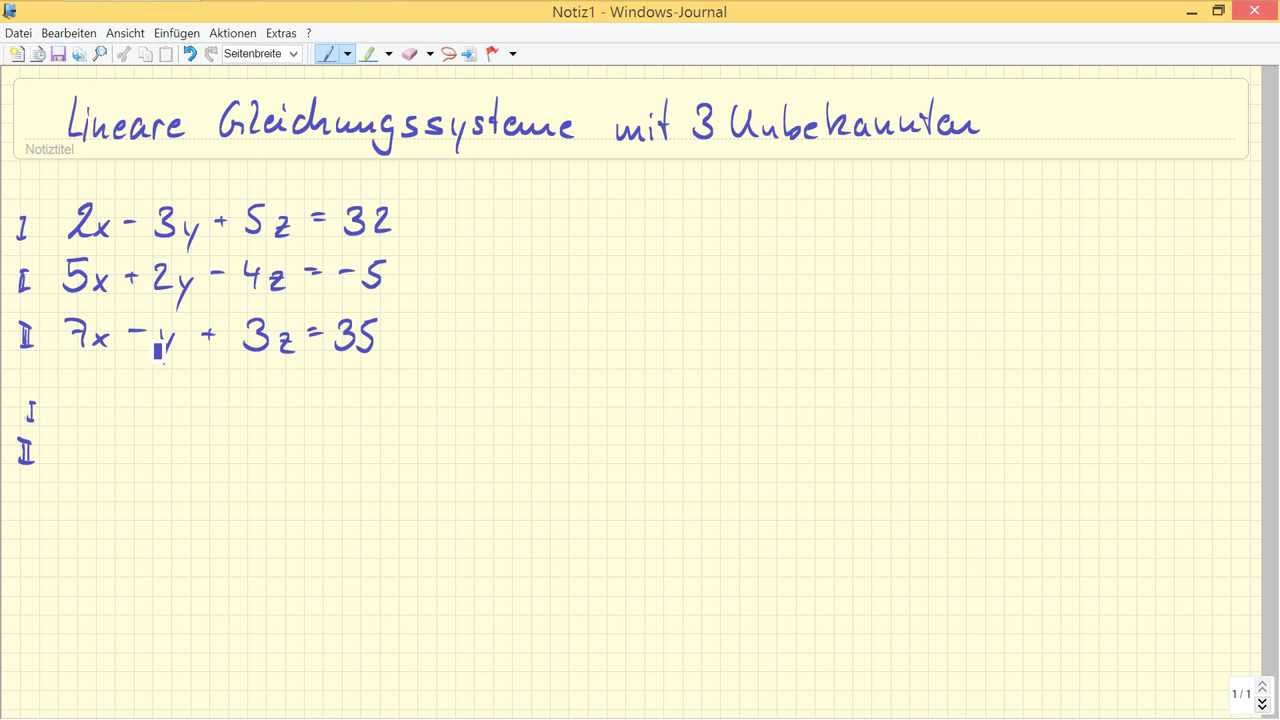 Notiz1 - Windows-Journal
Datei Bearbeiten Ansicht Einfügen Aktionen Extras ?
Seitenbreite
Lineare Gleichungssysteme mit 3 Unbekannten
Notiztitel
I 2x - 3y + 5z = 32
II 5x + 2y - 4z = -5
III 7x - y + 3z = 35
I
II
1 / 1